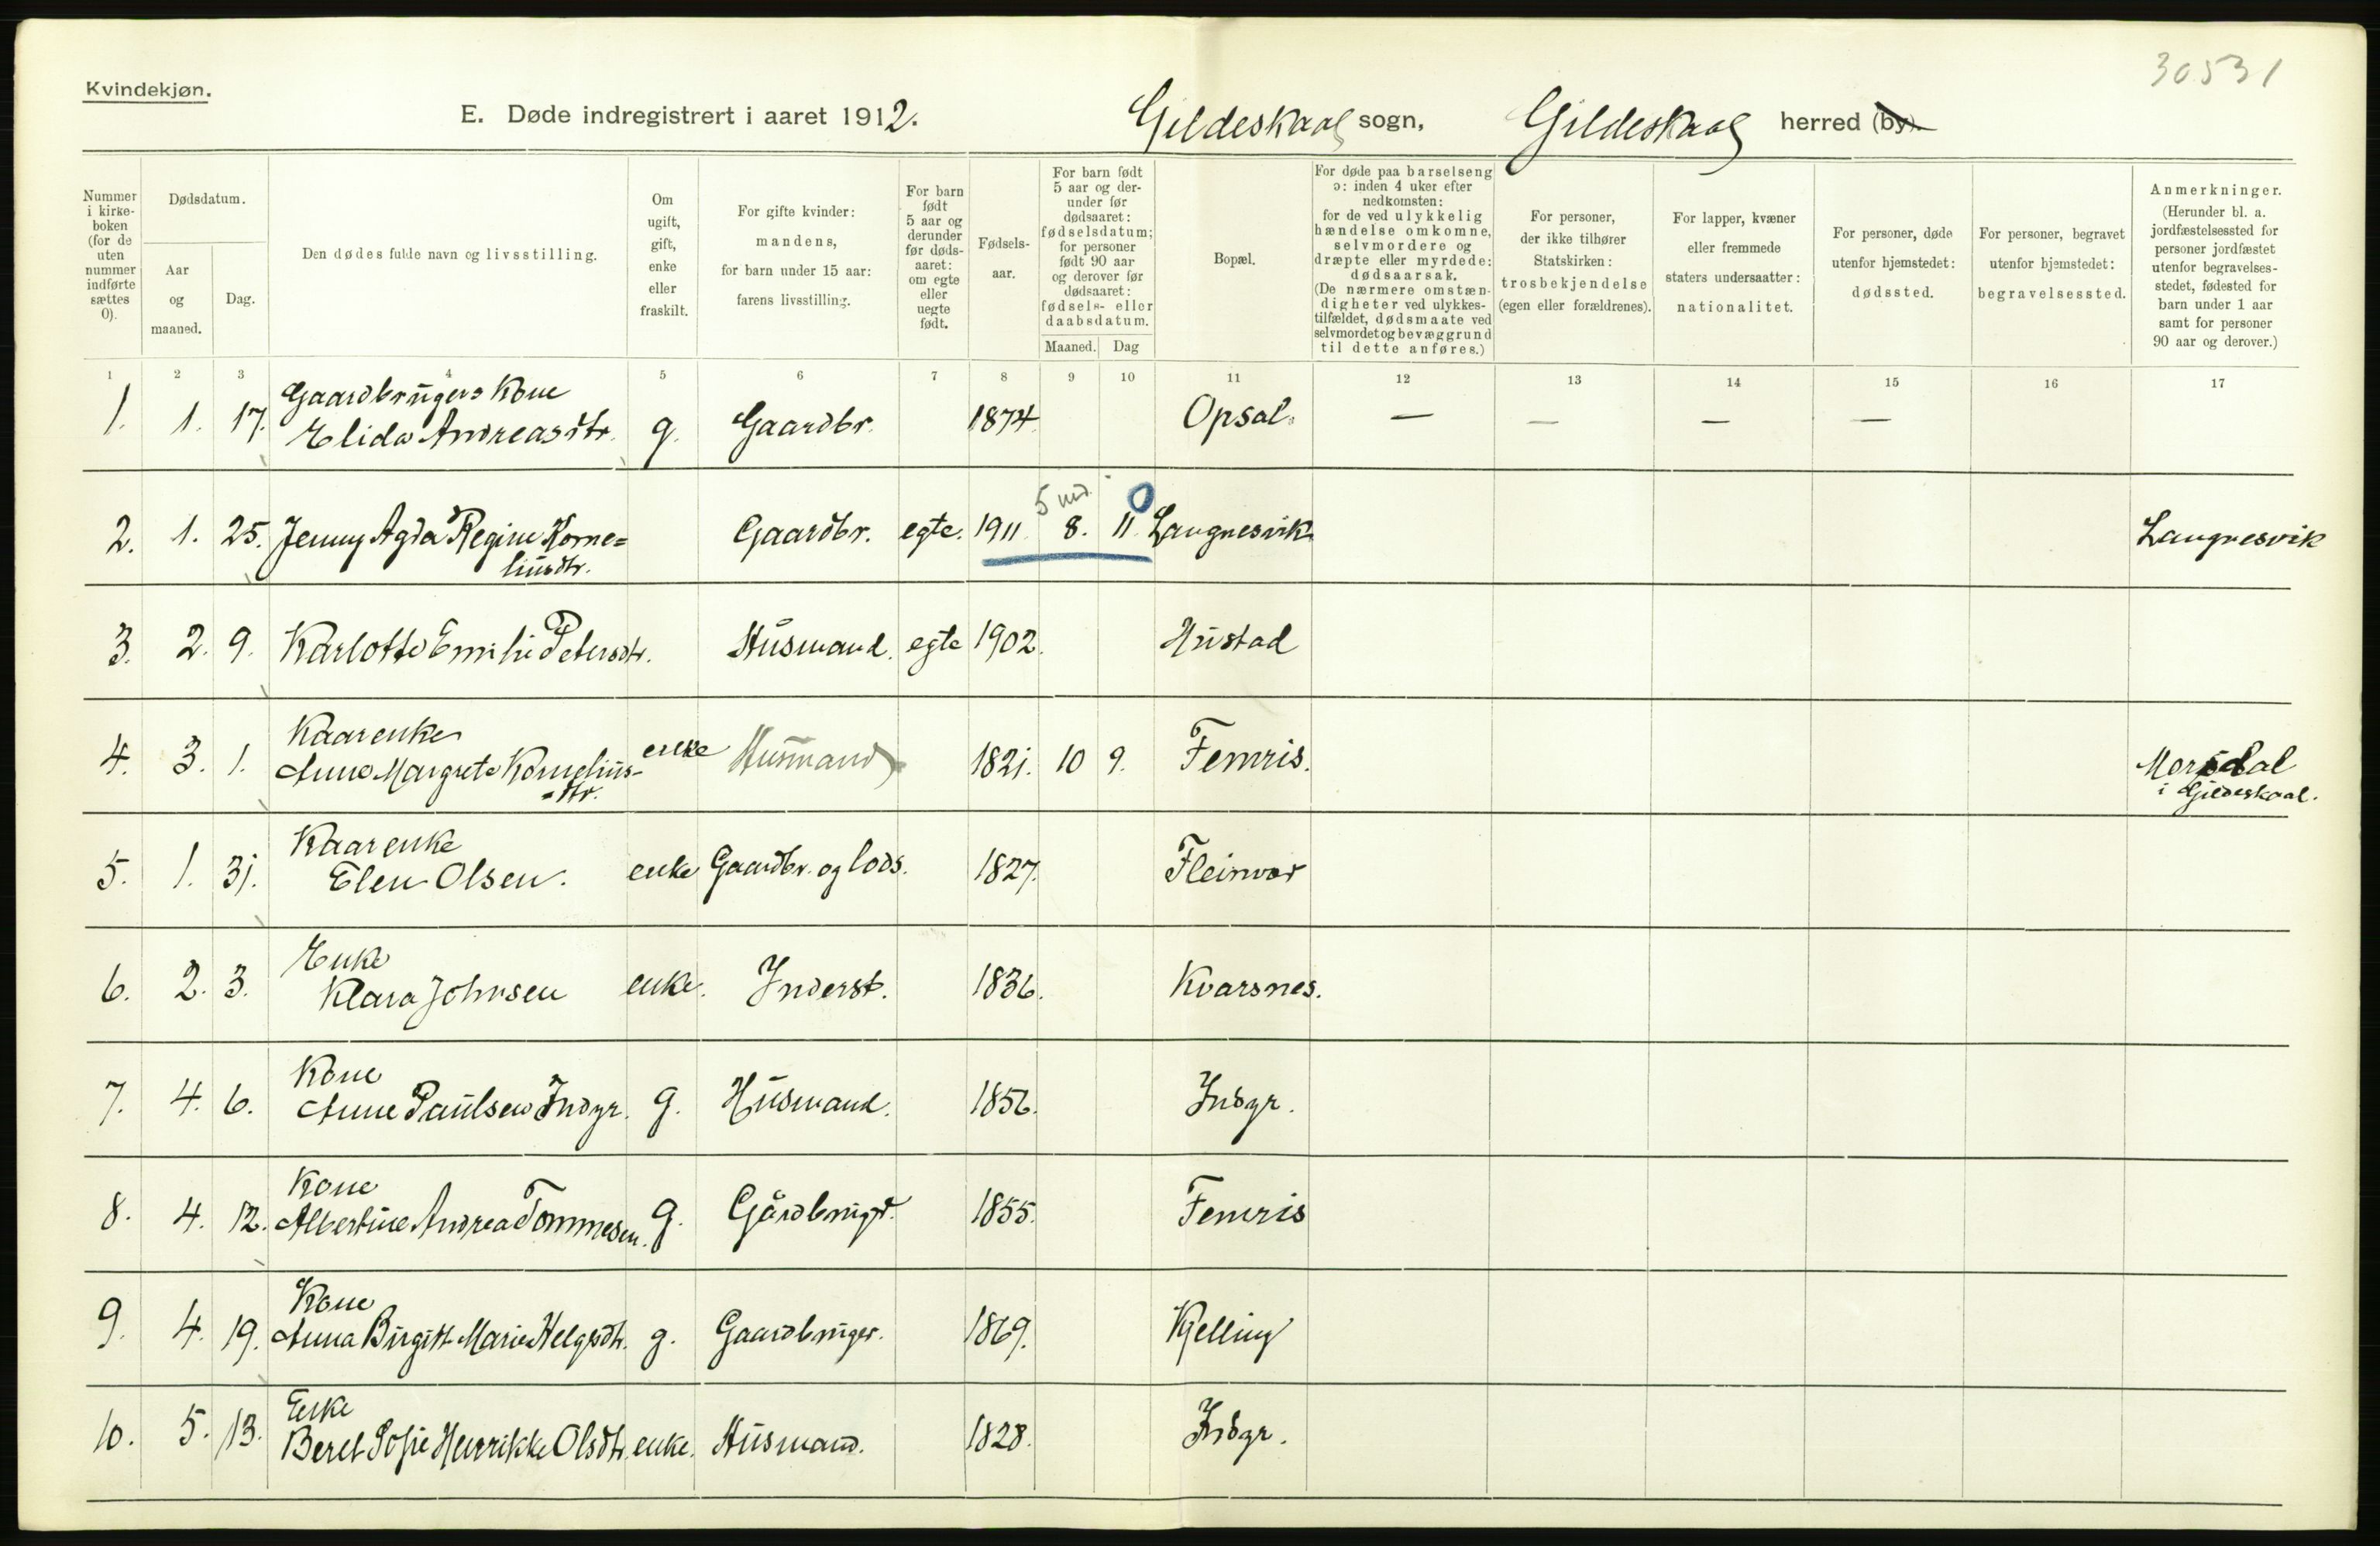 30531
Kvindekjøn.
E. Døde indregistrert i aaret 1912.
Gildeskaal sogn, Gildeskaal herred (by).
Nummer i kirke-boken (for de uten nummer indførte sættes 0).
Dødsdatum.
Aar og maaned.
Dag.
Den dødes fulde navn og livsstilling.
Om ugift, gift, enke eller fraskilt.
For gifte kvinder: mandens, for barn under 15 aar: farens livsstilling.
For barn født 5 aar og derunder før døds-aaret: om egte eller uegte født.
Fødsels-aar.
For barn født 5 aar og der-under før dødsaaret: fødselsdatum; for personer født 90 aar og derover før dødsaaret: fødsels- eller daabsdatum.
Maaned. Dag
Bopæl.
For døde paa barselseng ɔ: inden 4 uker efter nedkomsten: for de ved ulykkelig hændelse omkomne, selvmordere og dræpte eller myrdede: dødsaarsak. (De nærmere omstæn-digheter ved ulykkes-tilfældet, dødsmaate ved selvmordet og bevæggrund til dette anføres.)
For personer, der ikke tilhører Statskirken: trosbekjendelse (egen eller forældrenes).
For lapper, kvæner eller fremmede staters undersaatter: nationalitet.
For personer, døde utenfor hjemstedet: dødssted.
For personer, begravet utenfor hjemstedet: begravelsessted.
Anmerkninger. (Herunder bl. a. jordfæstelsessted for personer jordfæstet utenfor begravelses-stedet, fødested for barn under 1 aar samt for personer 90 aar og derover.)
1 2 3 4 5 6 7 8 9 10 11 12 13 14 15 16 17
Gaardbrugers Kone
1. 1. 17. Elida Andreasdtr. g. Gaardbr. 1874. Opsal. — — — —
5 md. 0
2. 1. 25. Jenny Agda Regine Korne= Gaardbr. egte. 1911. 8. 11. Langnesvik Langnesvik
liusdtr.
3. 2. 9. Karlotte Emilie Petersdtr. Husmand. egte 1902. Hustad
Kaarenke
4. 3. 1. Anne Margrete Kornelius- enke Husmand 1821. 10 9. Femris. Morsdal
-dtr. i Gildeskaal.
Kaarenke
5. 1. 31. Elen Olsen. enke Gaardbr. og lods. 1827. Fleinvær
Enke
6. 2. 3. Klara Johnsen enke. Inderst. 1836. Kvarsnes.
Kone
7. 4. 6. Anne Paulsen Indyr. g. Husmand. 1856. Indyr.
Kone
8. 4. 12. Albertine Andrea Tommesen. g. Gårdbruger. 1855. Femris
Kone
9. 4. 19. Anna Birgitt Marie Helgesdtr. g. Gaardbruger. 1869. Kjelling
Enke
10. 5. 13. Beret Sofie Henrikke Olsdtr. enke. Husmand. 1828. Indyr.